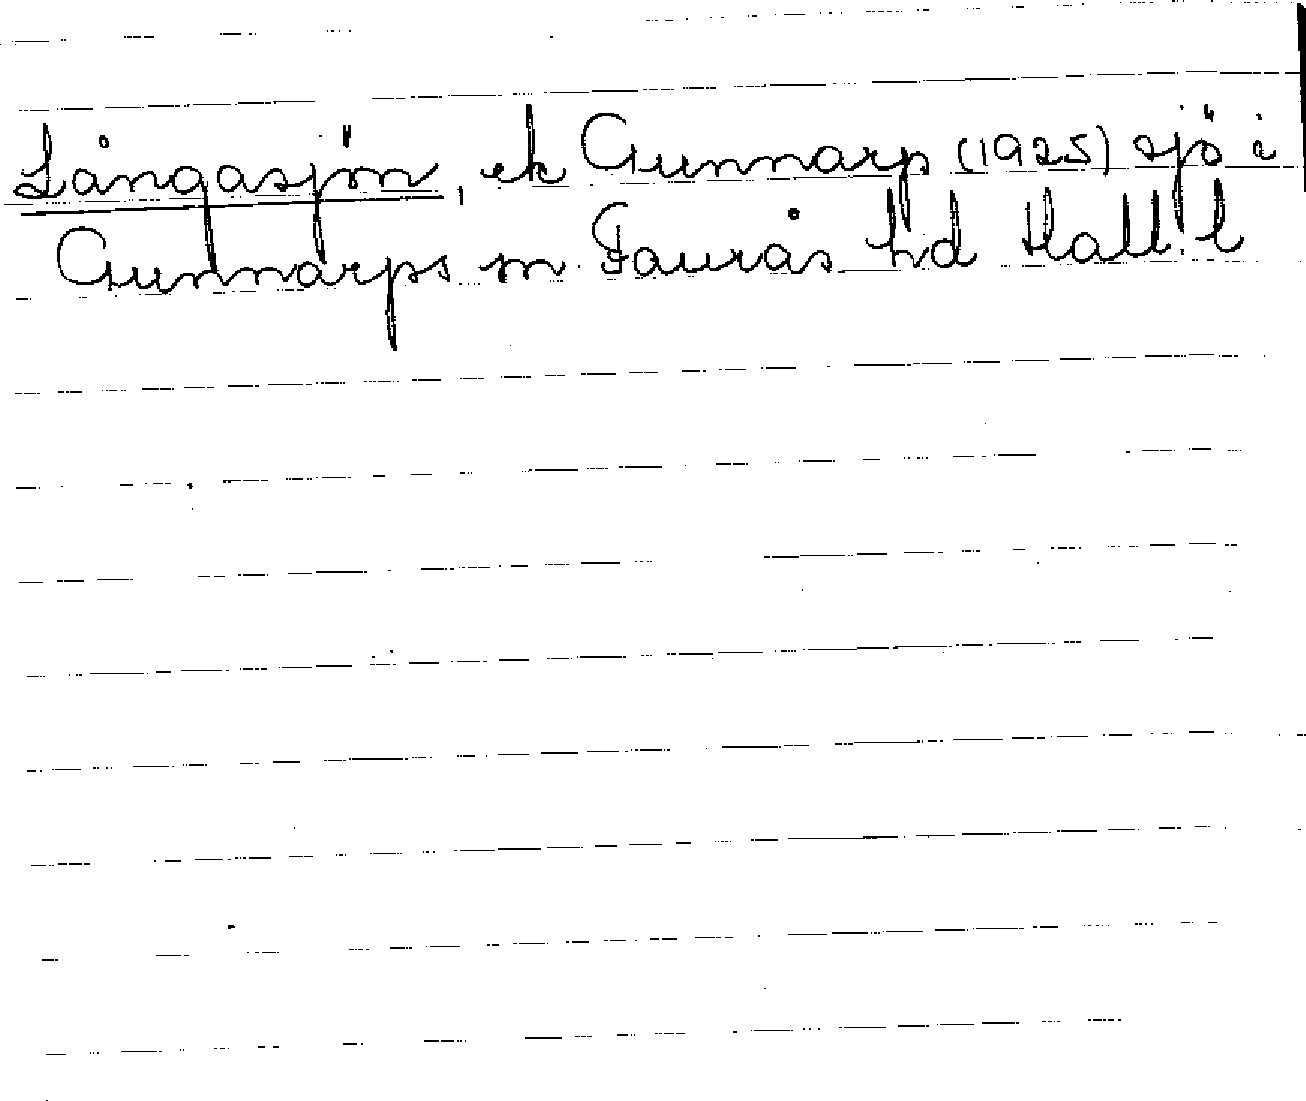 Långasjön, ek Gunnarp (1925) sjö i
Gunnarps sn Faurås hd Hall. l